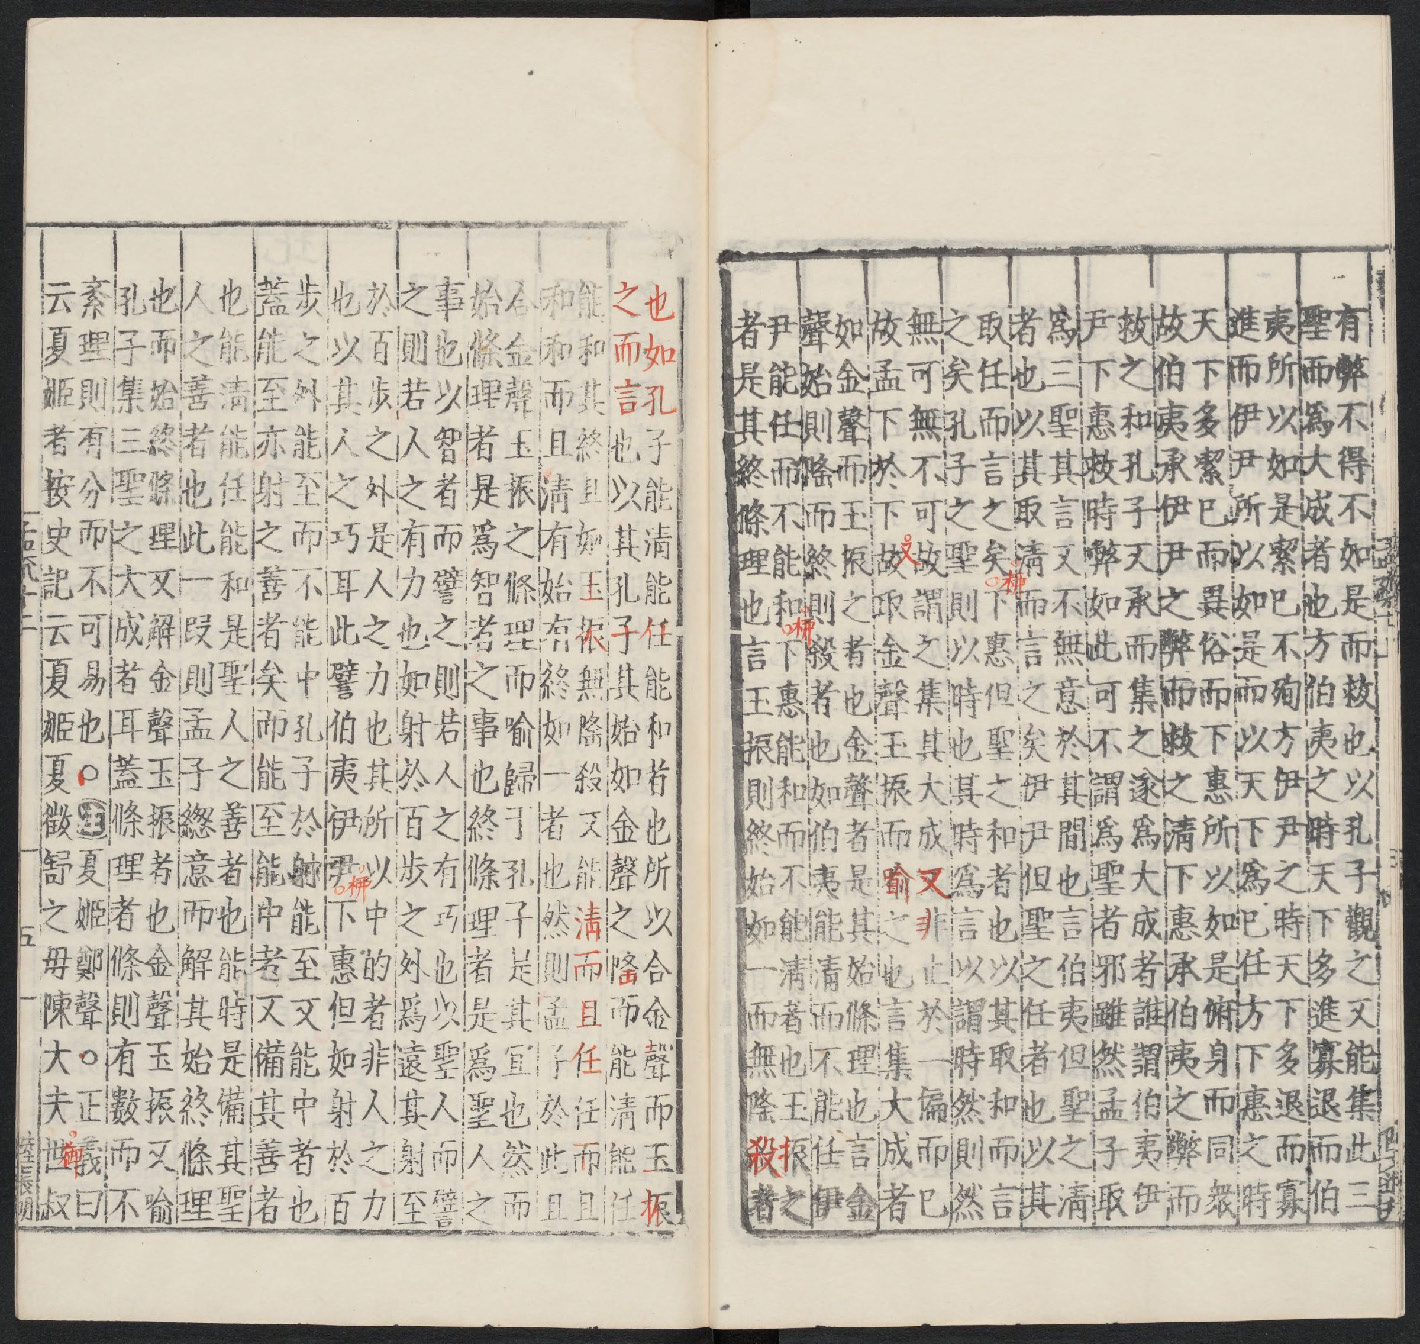 有弊不得不如是而救也以孔子觀之又能集此三
聖而為大成者也方伯夷之時天下多進寡退而伯
夷所以如是絜已不殉方伊尹之時天下多退而寡
進而伊尹所以如是而以天下為已任方下惠之時
天下多絜已而異俗而下惠所以如是俯身而同衆
故伯夷承伊尹之弊而救之清下惠承伯夷之弊而
救之和孔子又承而集之遂為大成者誰謂伯夷伊
尹下惠救時弊如此可不謂為聖者邪雖然孟子取
為三聖其言又不無意於其間也言伯夷但聖之清
者也以其取清而言之矣伊尹但聖之任者也以其
取任而言之矣下惠但聖之和者也以其取和而言
之矣孔子之聖則以時也其時為言以謂時然則然
無可無不可故謂之集其大成又非止於一偏而已
故孟下於下故取金聲玉振而喻之也言集大成者
如金聲而玉振之者也金聲者是其始條理也言金
聲始則隆而終則殺者也如伯夷能清而不能任伊
尹能任而不能和下惠能和而不能清者也玉振之
者是其終條理也言玉振則終始如一而無隆殺者
也如孔子能清能任能和者也所以合金聲而玉振
之而言也以其孔子其始如金聲之隆而能清能任
能和其終且如玉振無隆殺又能清而且任任而且
和和而且清有始有終如一者也然則孟子於此且
合金聲玉振之條理而喻歸于孔子是其宜也然而
始條理者是為智者之事也終條理者是為聖人之
事也以智者而譬之則若人之有巧也以聖人而譬
之則若人之有力也如射於百步之外為遠其射至
於百步之外是人之力也其所以中的者非人之力
也以其人之巧耳此譬伯夷伊尹下惠但如射於百
步之外能至而不能中孔子於射能至又能中者也
蓋能至亦射之善者矣而能至能中者又備其善者
也能清能任能和是聖人之善者也能時是備其聖
人之善者也此一段則孟子緫意而解其始終條理
也而始終條理又解金聲玉振者也金聲玉振又喻
孔子集三聖之大成者耳蓋條理者條則有數而不
紊理則有分而不可易也○注夏姬鄭聲○正義曰
云夏姬者按史記云夏姬夏徵舒之母陳大夫世叔
又
柳
柳
柳
御
五